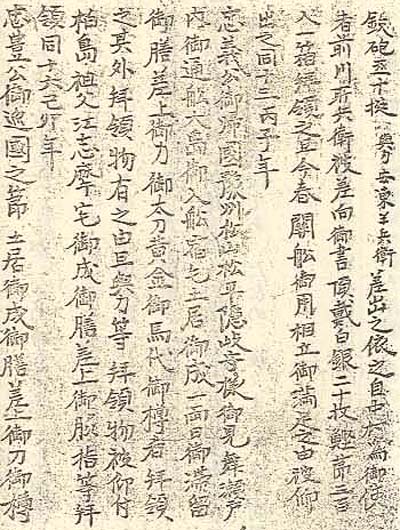 鉄砲五十挺與力安東羊兵衛差出之依之自中村為御使
者前川平兵衛被差向御書頂戴白銀二十枚鰹節二百
入一箱拝領之且今春關舩御用相立御満足之由被仰
出之同十三丙子年
忠義公御帰国豫州松山松平隠岐守様御見舞瀬戸
内御通舩大島御入舩宿毛土居御成一両日御滞留
御膳差上御刀御太刀黄金御馬代御樽肴拝領
之其外拝領物有之由且與力等拝領物被仰付
柏島祖父江志摩宅御成御膳差上御脇指等拝
領同十六己卯年
忠豊公御巡國之節土居御成御膳差上御刀御樽